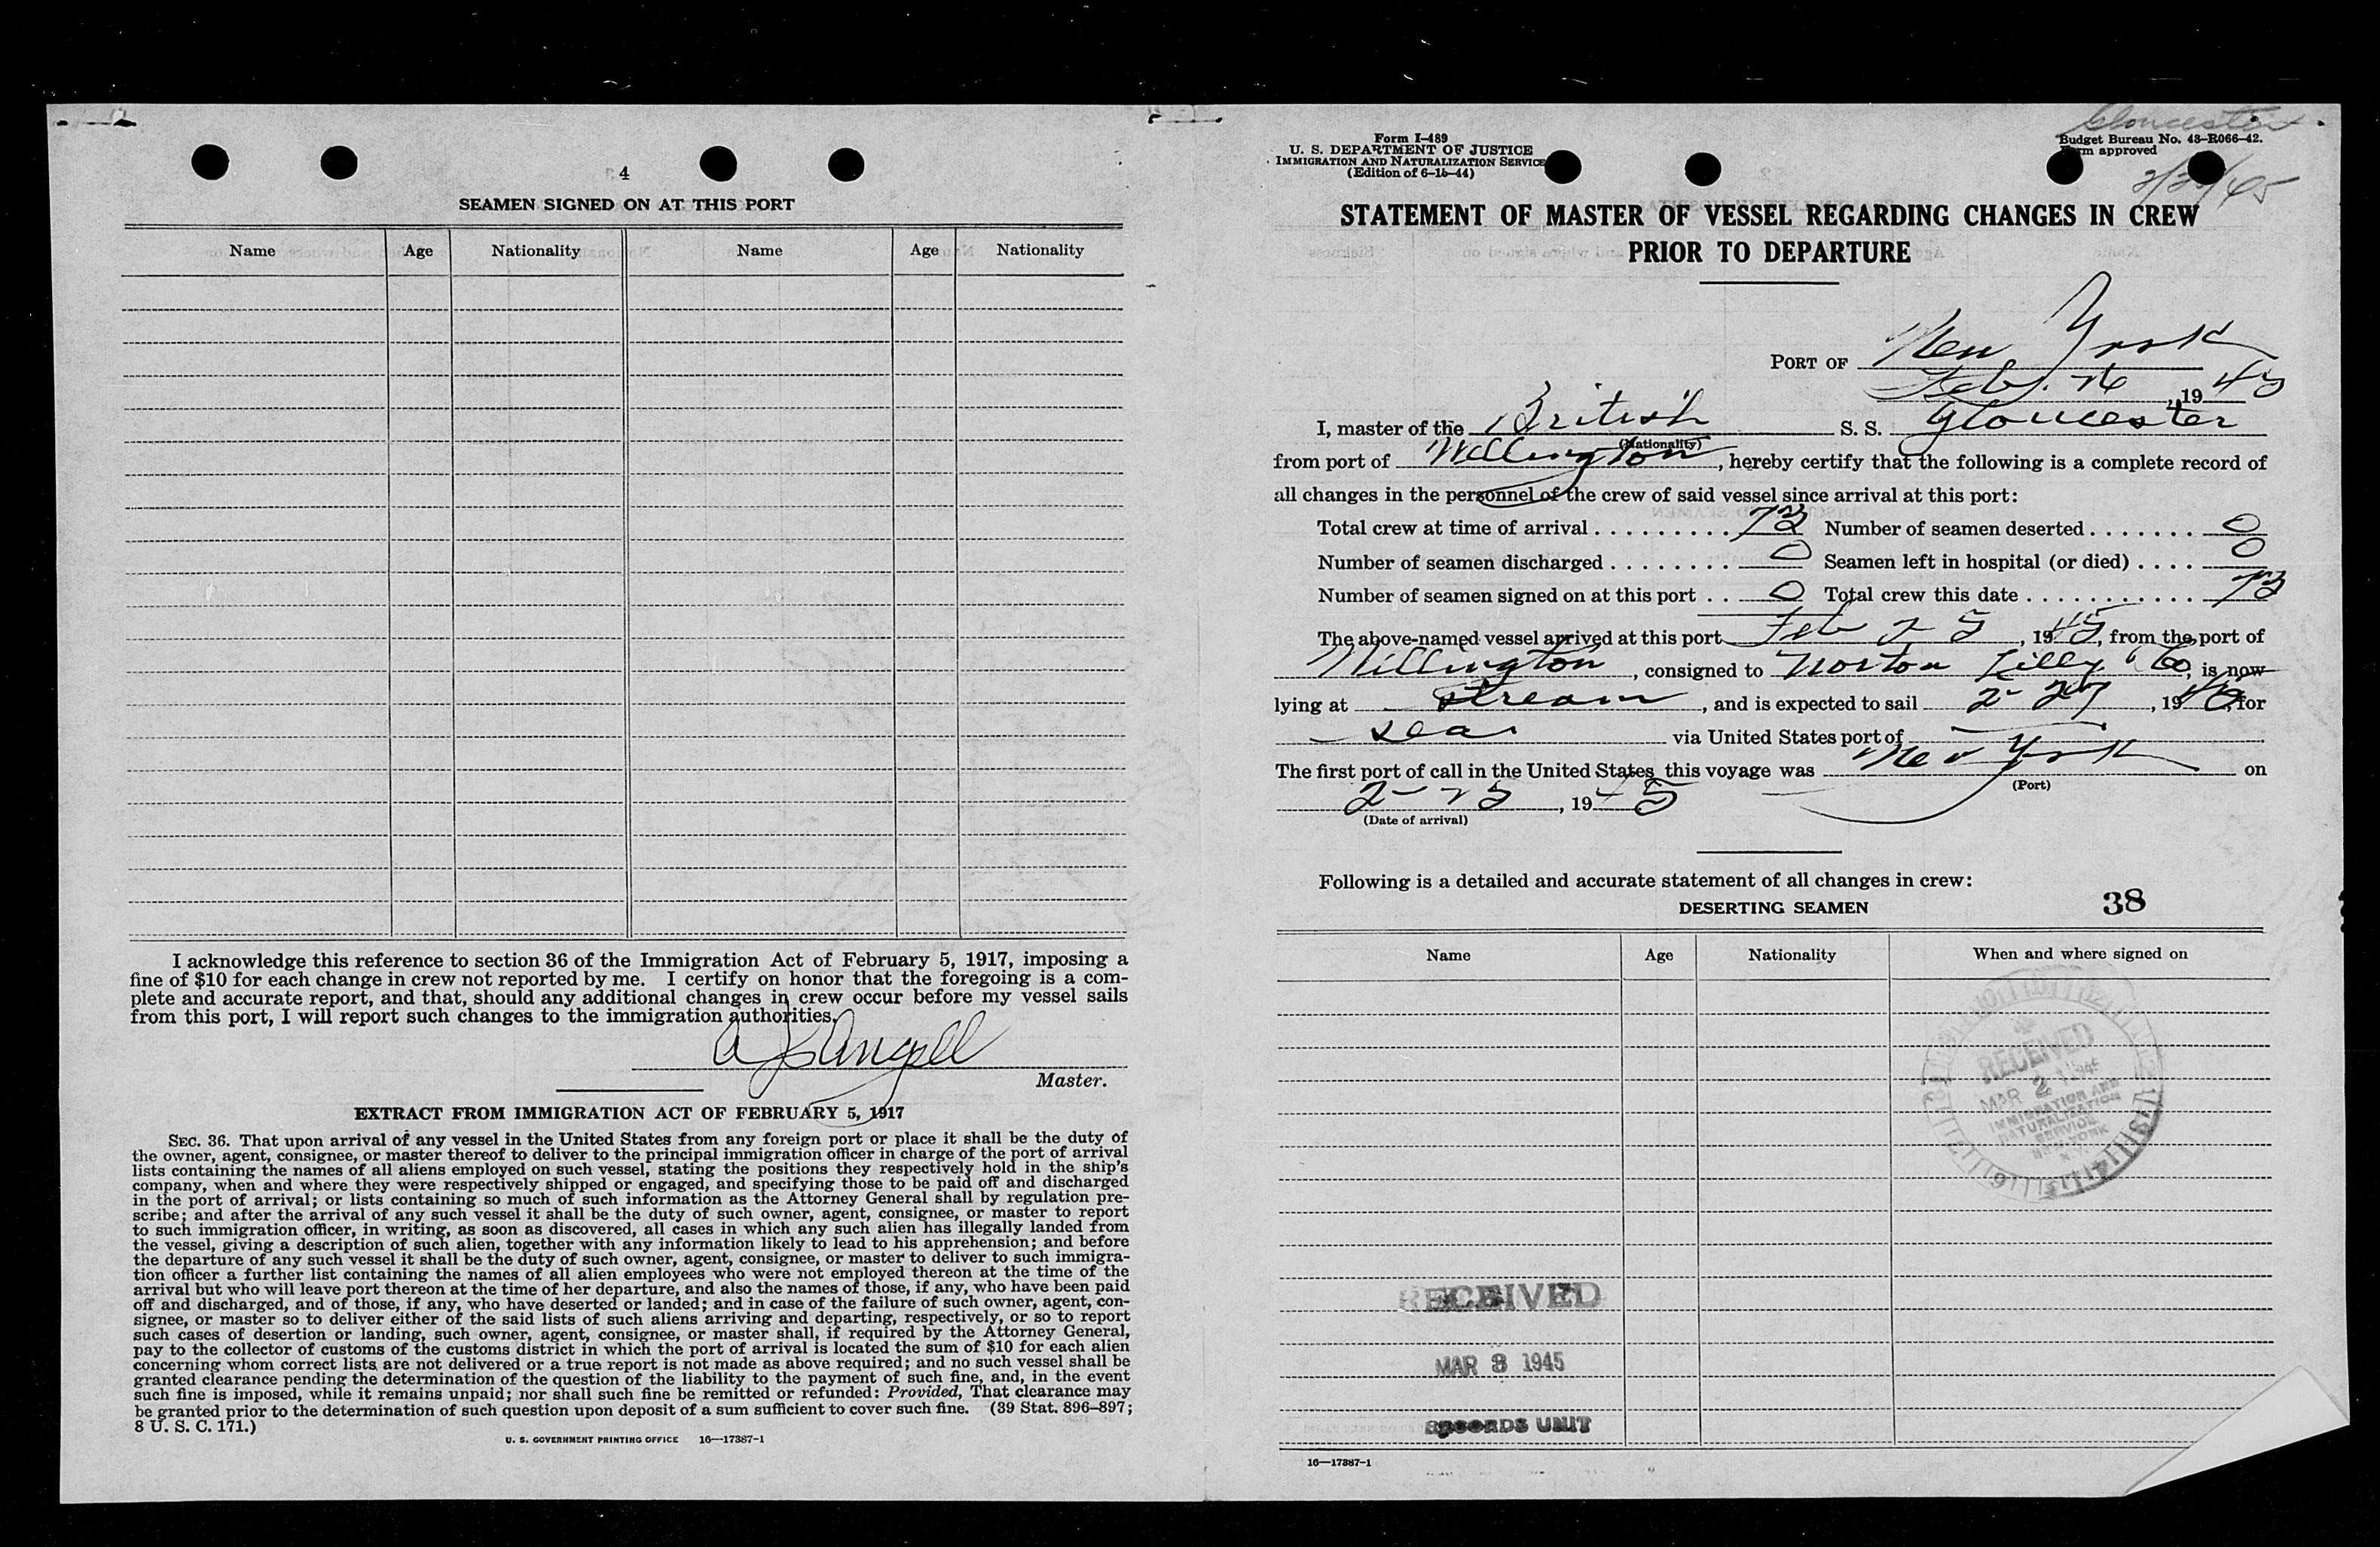 4
SEAMEN SIGNED ON AT THIS PORT
Name Age Nationality Name Age Nationality
I acknowledge this reference to section 36 of the Immigration Act of February 5, 1917, imposing a
fine of $10 for each change in crew not reported by me. I certify on honor that the foregoing is a com-
plete and accurate report, and that, should any additional changes in crew occur before my vessel sails
from this port, I will report such changes to the immigration authorities.
Angell
Master.
EXTRACT FROM IMMIGRATION ACT OF FEBRUARY 5, 1917
SEC. 36. That upon arrival of any vessel in the United States from any foreign port or place it shall be the duty of
the owner, agent, consignee, or master thereof to deliver to the principal immigration officer in charge of the port of arrival
lists containing the names of all aliens employed on such vessel, stating the positions they respectively hold in the ship's
company, when and where they were respectively shipped or engaged, and specifying those to be paid off and discharged
in the port of arrival; or lists containing so much of such information as the Attorney General shall by regulation pre-
scribe; and after the arrival of any such vessel it shall be the duty of such owner, agent, consignee, or master to report
to such immigration officer, in writing, as soon as discovered, all cases in which any such alien has illegally landed from
the vessel, giving a description of such alien, together with any information likely to lead to his apprehension; and before
the departure of any such vessel it shall be the duty of such owner, agent, consignee, or master to deliver to such immigra-
tion officer a further list containing the names of all alien employees who were not employed thereon at the time of the
arrival but who will leave port thereon at the time of her departure, and also the names of those, if any, who have been paid
off and discharged, and of those, if any, who have deserted or landed; and in case of the failure of such owner, agent, con-
signee, or master so to deliver either of the said lists of such aliens arriving and departing, respectively, or so to report
such cases of desertion or landing, such owner, agent, consignee, or master shall, if required by the Attorney General,
pay to the collector of customs of the customs district in which the port of arrival is located the sum of $10 for each alien
concerning whom correct lists are not delivered or a true report is not made as above required; and no such vessel shall be
granted clearance pending the determination of the question of the liability to the payment of such fine, and, in the event
such fine is imposed, while it remains unpaid; nor shall such fine be remitted or refunded: Provided, That clearance may
be granted prior to the determination of such question upon deposit of a sum sufficient to cover such fine. (39 Stat. 896–897;
8 U. S. C. 171.)
U. S. GOVERNMENT PRINTING OFFICE 16—17387-1
Gloucester
Form I-489
U. S. DEPARTMENT OF JUSTICE
IMMIGRATION AND NATURALIZATION SERVICE
(Edition of 6-15-44)
Budget Bureau No. 43-R066-42.
Form approved
STATEMENT OF MASTER OF VESSEL REGARDING CHANGES IN CREW
PRIOR TO DEPARTURE
PORT OF New York
Feb. 26, 1945
I, master of the British S. S. Gloucester
(Nationality)
from port of Wellington, hereby certify that the following is a complete record of
all changes in the personnel of the crew of said vessel since arrival at this port:
Total crew at time of arrival . . . . . . . . . 73 Number of seamen deserted . . . . . . . 0
Number of seamen discharged . . . . . . . . 0 Seamen left in hospital (or died) . . . . 0
Number of seamen signed on at this port . . 0 Total crew this date . . . . . . . . . . . . 73
The above-named vessel arrived at this port Feb 25, 1945, from the port of
Willington, consigned to Norton Lilly & Co, is now
lying at stream, and is expected to sail 2-27, 1945, for
sea via United States port of —
The first port of call in the United States this voyage was New York on
(Port)
2-25, 1945
(Date of arrival)
Following is a detailed and accurate statement of all changes in crew:
DESERTING SEAMEN 38
Name Age Nationality When and where signed on
RECEIVED
MAR 2 1945
IMMIGRATION AND
NATURALIZATION
SERVICE
NEW YORK
N.Y.
RECEIVED
MAR 8 1945
RECORDS UNIT
16—17387-1